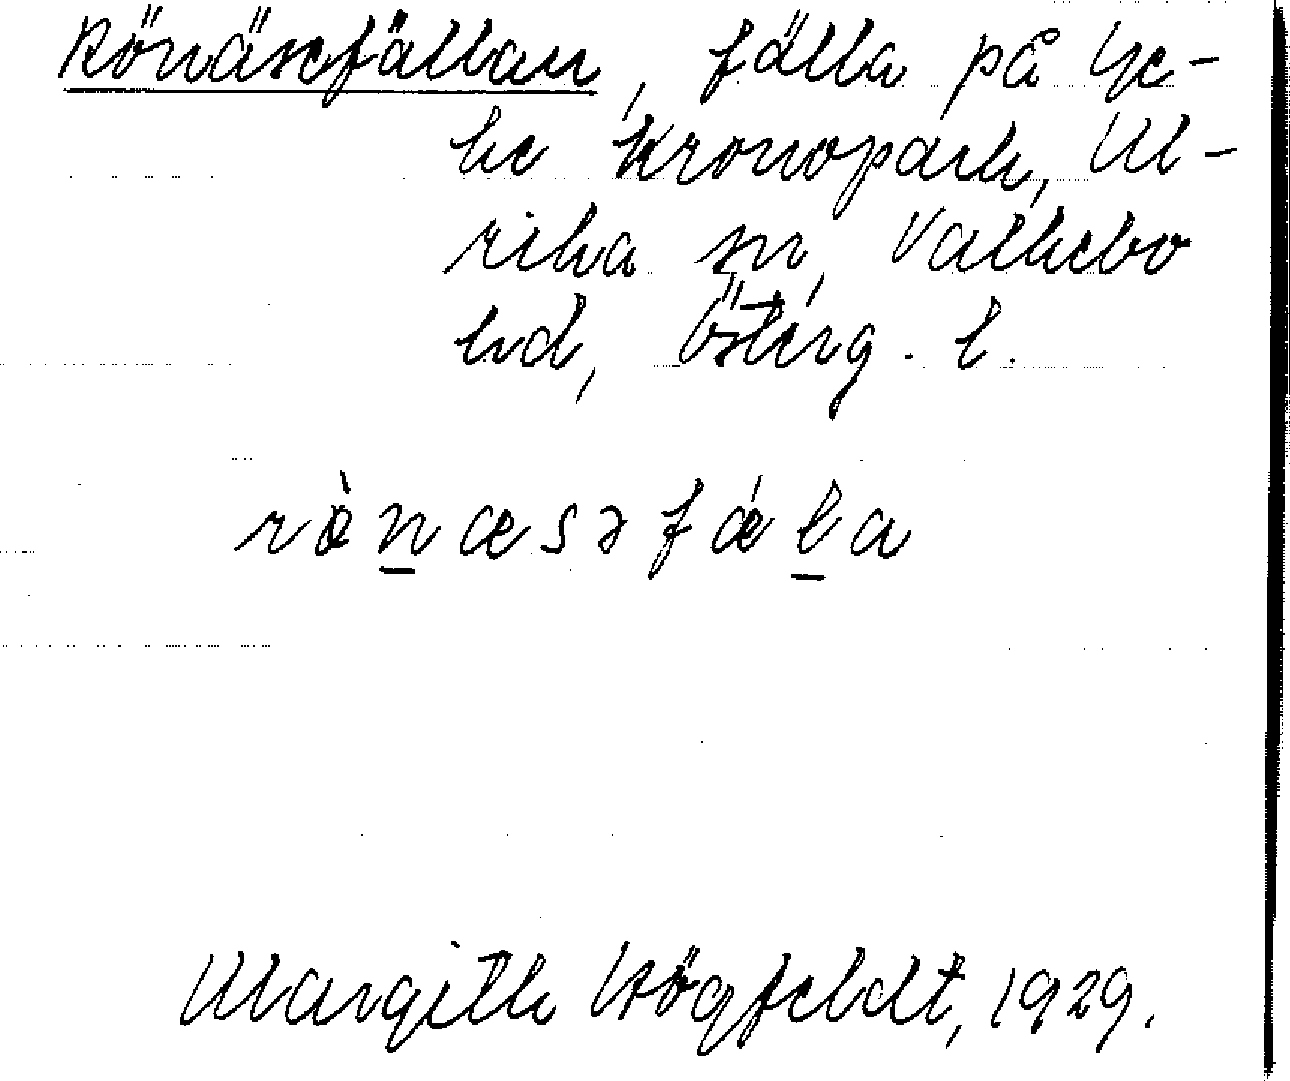 Rönäsefällan, fälla på Yc-
ke kronopark, Ul-
rika sn, Valkebo
hd, Österg. l.
rö̀næsəfǽla
Margith Högfeldt, 1929.